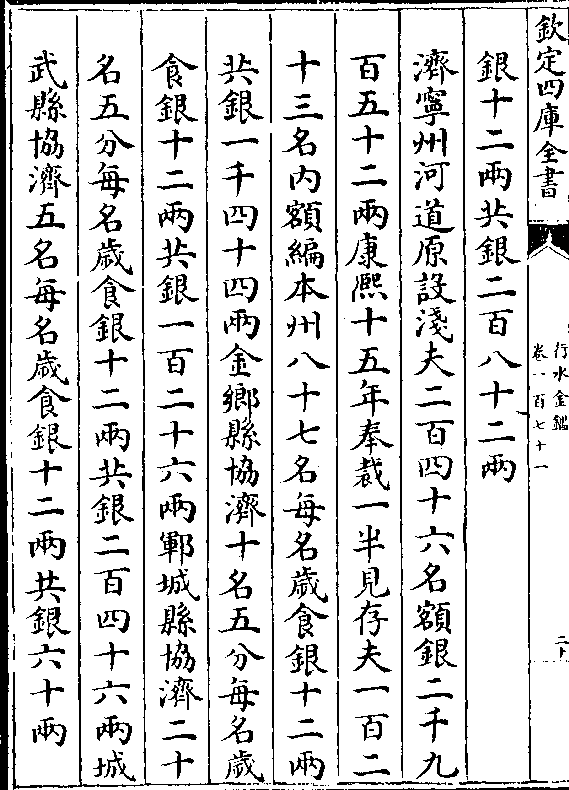 欽定四庫全書
行水金鑑
卷一百七十一
二十
銀十二兩共銀二百八十二兩
濟寧州河道原設淺夫二百四十六名額銀二千九
百五十二兩康熙十五年奉裁一半見存夫一百二
十三名内額編本州八十七名每名歲食銀十二兩
共銀一千四十四兩金鄉縣協濟十名五分每名歲
食銀十二兩共銀一百二十六兩鄆城縣協濟二十
名五分每名歲食銀十二兩共銀二百四十六兩城
武縣協濟五名每名歲食銀十二兩共銀六十兩